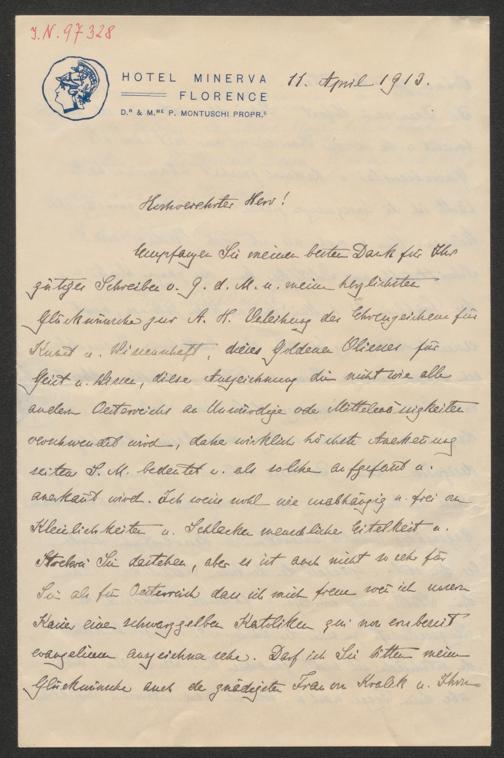 J.N. 97328
HOTEL MINERVA
FLORENCE
D.R & M.ME P. MONTUSCHI PROPR.S
11. April 1913.
Hochverehrter Herr!
Empfangen Sie meinen besten Dank für Ihr
gütiges Schreiben v. 9. d. M. u. meine herzlichsten
Glückwünsche zur A. H. Verleihung des Ehrenzeichens für
Kunst u. Wissenschaft, dieses Goldenen Vlieses für
Geist u. Wissen, diese Auszeichnung die nicht wie alle
andern Oesterreichs an Unwürdige oder Mittelmäßigkeiten
verschwendet wird, daher wirklich höchste Anerkennung
seitens S. M. bedeutet u. als solche aufgefasst u.
anerkannt wird. Ich weiss wohl wie unabhängig u. frei von
Kleinlichkeiten u. Schlacken menschlicher Eitelkeit u.
Sie dastehen, aber es ist auch nicht so sehr für
Sie als für Oesterreich dass ich mich freue wenn ich unsern
Kaiser eine schwarzgelben Katholiken
auszeichnen sehe. Darf ich Sie bitten meine
Glückwünsche auch der gnädigsten Frau von Kralik u. Ihren